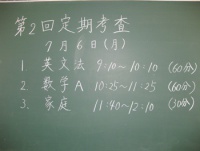 第2回定期考査
7月6日(月)
1. 英文法 9:10~10:10 (60分)
2. 数学A 10:25~11:25 (60分)
3. 家庭 11:40~12:10 (30分)